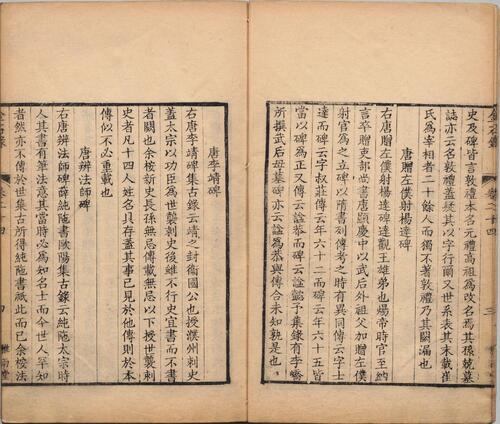 金石錄
卷二十四
三
史及碑皆言敦禮本名元禮高祖為改名焉其孫兢墓
誌亦云名敦禮其以字行爾又世系表其末載崔
氏為宰相者二十餘人而獨不著敦禮乃其闕漏也
唐贈左僕射楊達碑
右唐贈左僕射楊達碑達觀王雄弟也煬帝時官至納
言卒贈吏部尚書唐顯慶中以武后外祖父加贈左僕
射官為之立碑以隋書列傳考之時有異同傳云字士
達而碑云字叔莊傳云年六十二而碑云年六十五皆
當以碑為正又傳云諡恭而碑云諡懿予集錄有李嶠
所撰武后母墓碑亦云諡為恭與傳合未知孰是也
唐李靖碑
右唐李靖碑集古錄云靖之封衛國公也授濮州刺史
蓋太宗以功臣為世襲刺史後雖不行史宜書而不書
者闕也余按新史長孫無忌傳載無忌以下授世襲刺
史者凡十四人姓名具存蓋其事已見於他傳則於本
傳似不必重載也
唐辨法師碑
右唐辨法師碑薛純陁書歐陽集古錄云純陁太宗時
人其書有筆法意其當時必為知名士而今世人罕知
者然亦不傳於世集古所得純陁書秖此而已余按法
金石錄
卷二十四
雅雨堂